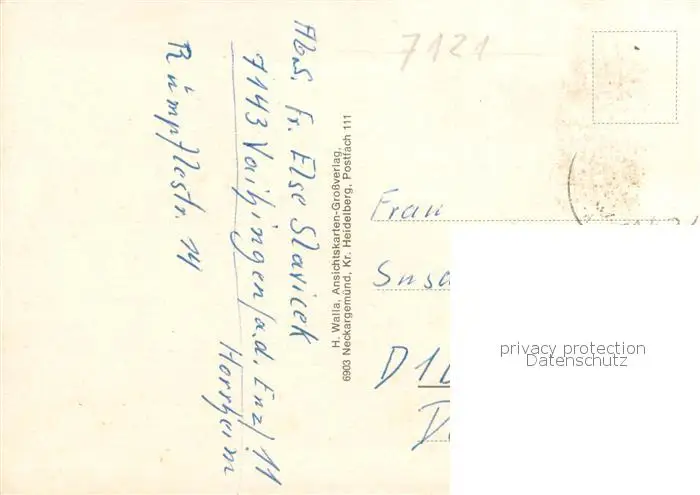 Abs. Fr. Else Slavicek
7143 Vaihingen/a.d. Enz/11
Horrheim
Rümpflestr. 14
H. Walla, Ansichtskarten-Großverlag,
6903 Neckargemünd, Kr. Heidelberg, Postfach 111
7121
Frau
Susa
D 1
D
privacy protection
Datenschutz